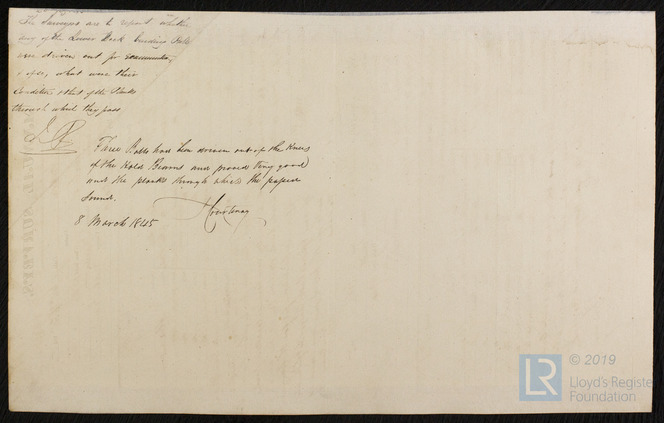 The Surveyors are to report whether
any of the Lower Deck binding Bolts
were driven out for examination,
& if so, what were their
Condition & that of the Planks
through which they pass
Three Bolts had been driven out of the Knees
of the Hold Beams and proved very good
and the planks through which the passed
Sound.
Courtenay
8 March 1845
© 2019
LR
Lloyd's Register
Foundation